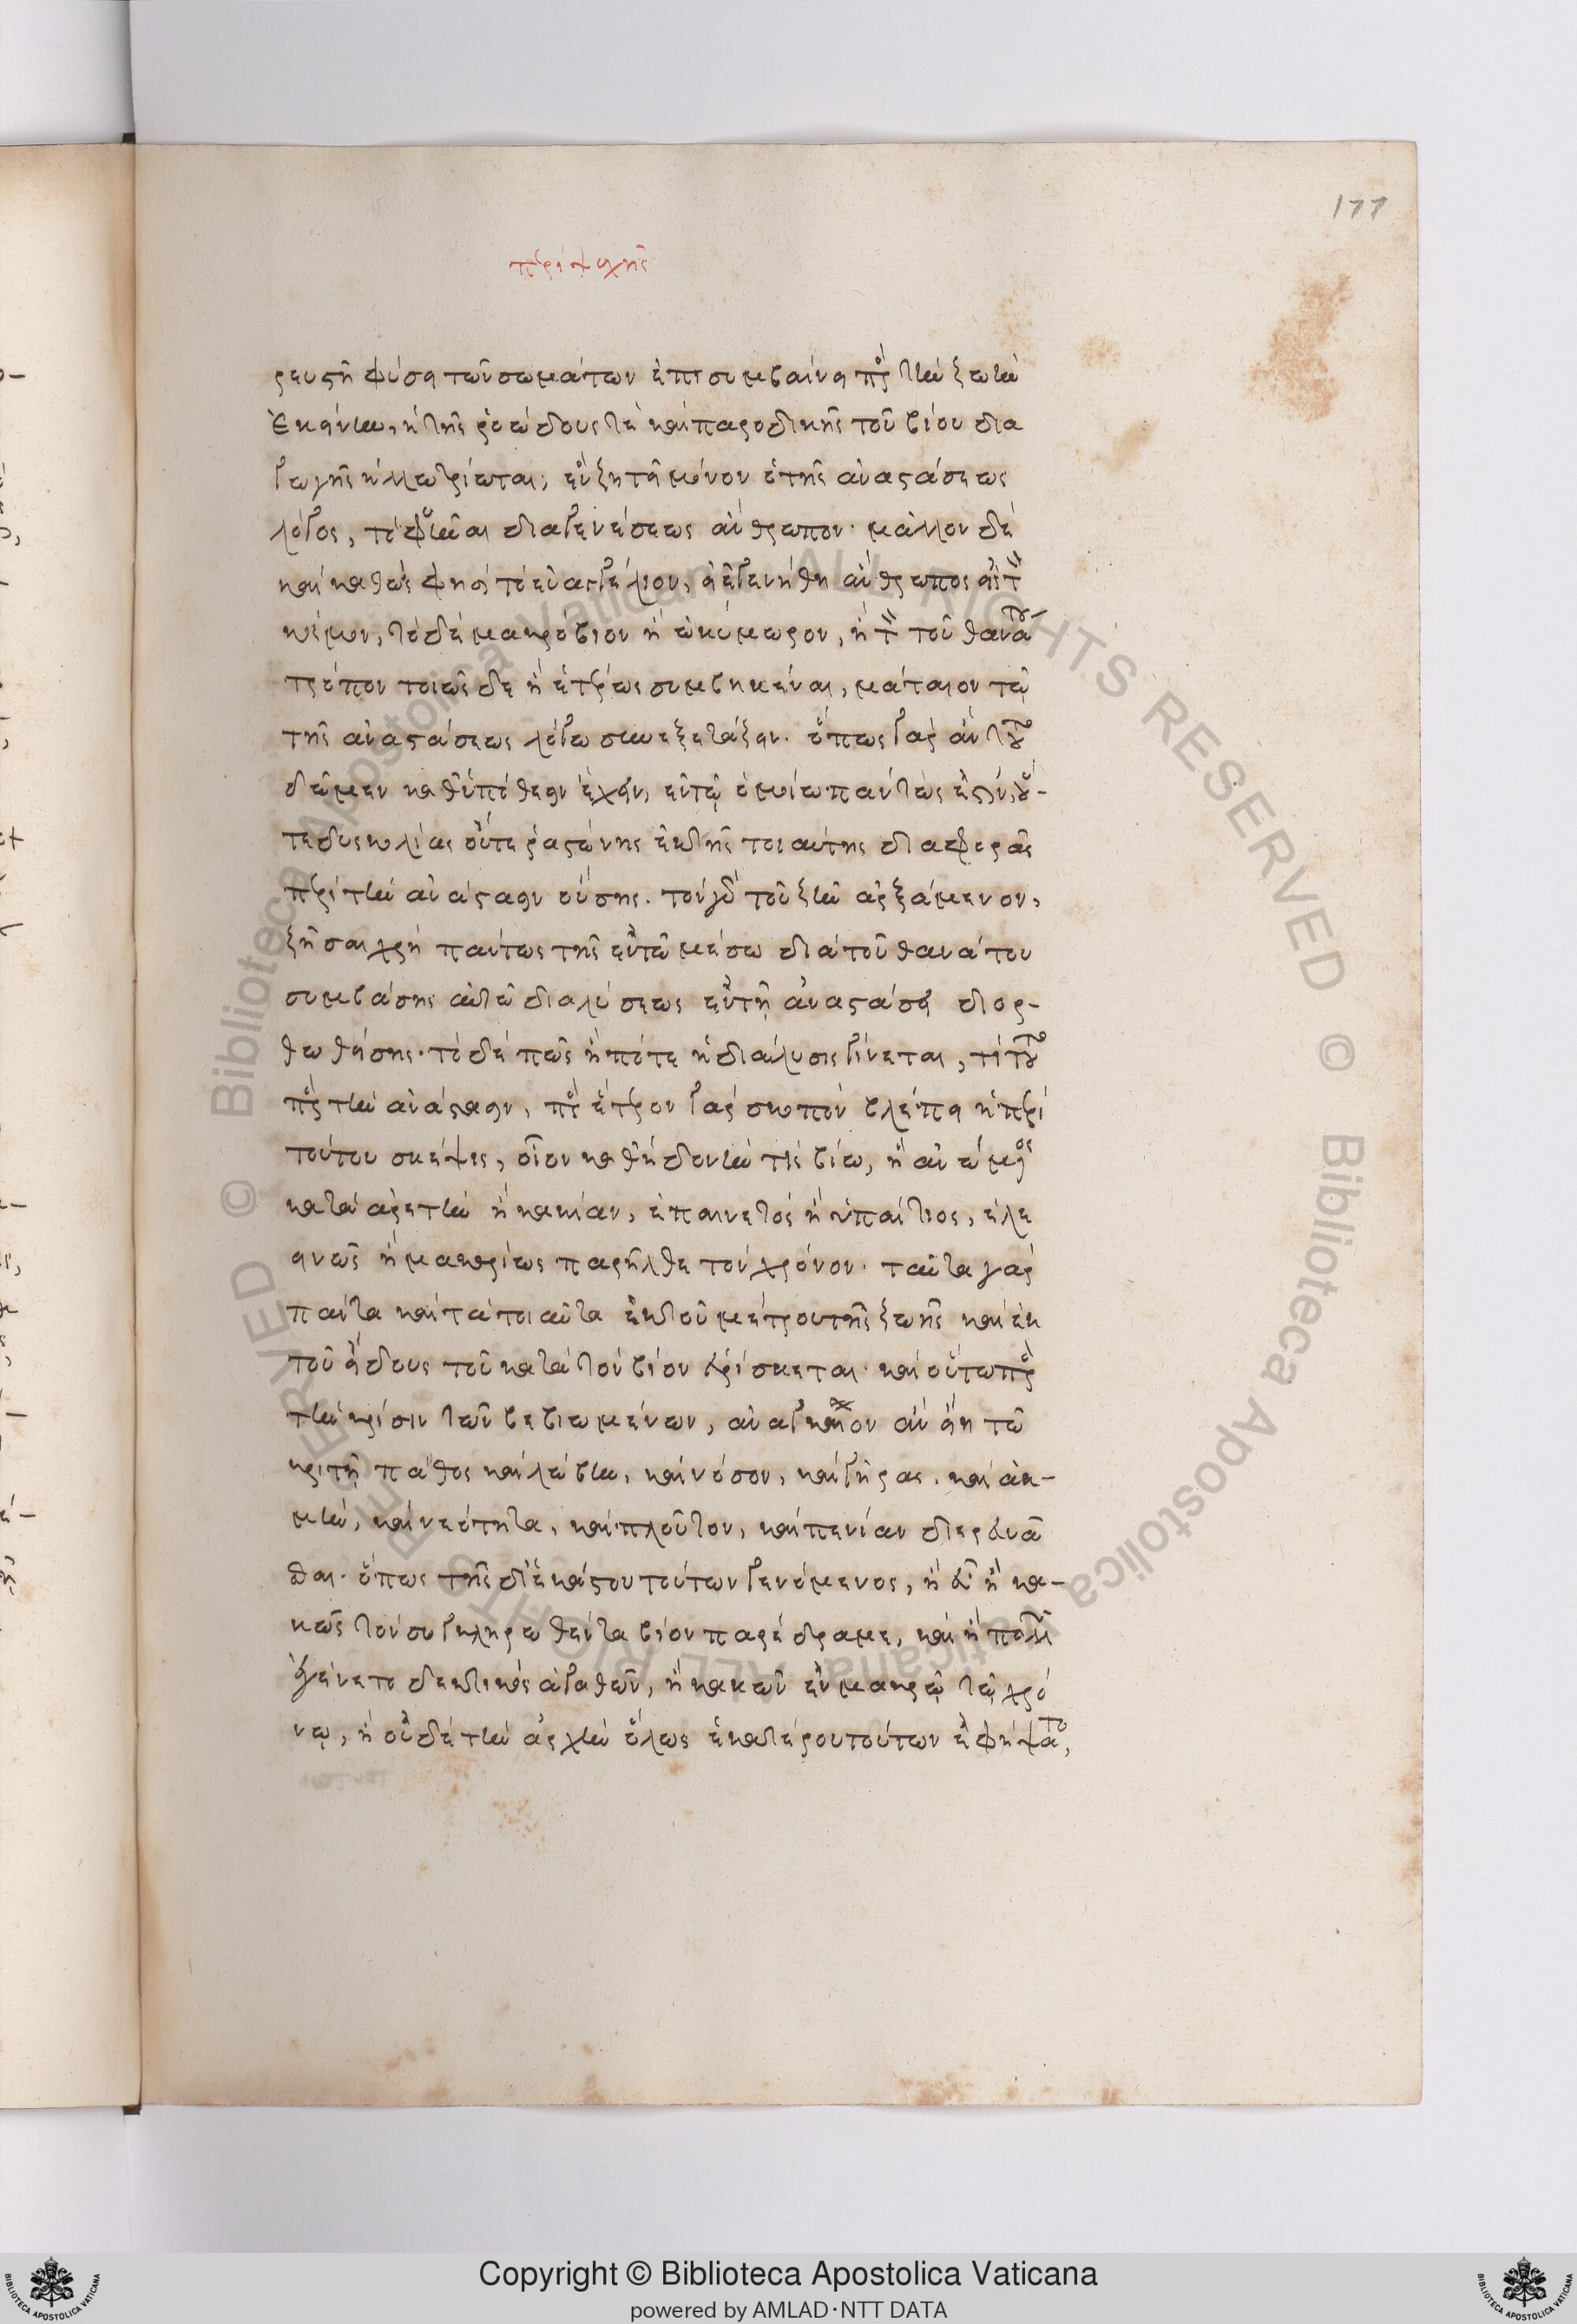 177
περὶ ψυχῆς
ρευστῇ φύσει τῶν σωμάτων ἐπισυμβαίνει πρὸς τὴν ζωὴν
ἐκείνην, κ τῆς ῥοώδους τε καὶ παροδικῆς τοῦ βίου δια
γωγῆς ἠλλωτρίωται, ἓν ζητεῖ μόνον ὁ τῆς ἀναστάσεως
λόγος, τὸ φυῆναι διαγενέσεως ἄνθρωπον· μᾶλλον δὲ
καὶ καθώς φησι τὸ εὐαγγέλιον, εἰ ἐγενήθη ἄνθρωπος εἰς τὸν
κόσμον, τὸ δὲ μακρόβιον ἢ ὠκύμωρον, ἢ τὸν τοῦ θανάτου
τρόπον τοιῶς δε ἢ ἑτέρως συμβηκέναι, μάταιον τῷ
τῆς ἀναστάσεως λόγω συνεξετάζειν. ὅπως γὰρ ἂν τοῦτο
δῶμεν καθ' ὑπόθεσιν ἔχειν, ἐν τῷ ὁμοίω πάντως ἐστίν, οὔ-
τε δυσκολίας οὔτε ῥαστώνης ἐκ τῆς τοιαύτης διαφορᾶς
περὶ τὴν ἀνάστασιν οὔσης. τὸν γὰρ τοῦ ζῆν ἀρξάμενον,
ζῆσαι χρὴ πάντως τῆς ἐν τῶ μέσω διὰ τοῦ θανάτου
συμβάσης αὐτῶ διαλύσεως ἐν τῇ ἀναστάσει διορ-
θωθείσης· τὸ δὲ πῶς ἢ πότε ἡ διάλυσις γίνεται, τί τοῦτο
πρὸς τὴν ἀνάστασιν, πρὸς ἕτερον γὰρ σκοπὸν βλέπει ἡ περὶ
τούτου σκέψις, οἷον καθ' ἡδονήν τις βίω, ἢ ἀνιώμενος
κατὰ ἀρετὴν ἢ κακίαν, ἐπαινετὸς ἢ ὑπαίτιος, ἐλε
εινῶς ἢ μακαρίως παρῆλθε τὸν χρόνον· ταῦτα γὰρ
πάντα καὶ τὰ τοιαῦτα ἐκ τοῦ μέτρου τῆς ζωῆς καὶ ἐκ
τοῦ εἴδους τοῦ κατὰ τὸν βίον εὑρίσκεται· καὶ οὕτω πρὸς
τὴν κρίσιν τῶν βεβιωμένων, ἀναγκαῖον ἂν εἴη τῶ
κριτῇ πάθος καὶ λώβην, καὶ νόσον, καὶ γῆρας, καὶ ἀκ-
μὴν, καὶ νεότητα, καὶ πλοῦτον, καὶ πενίαν διερευνᾶ
σθαι· ὅπως τῆς δι' ἑκάστου τούτων γενόμενος, ἢ εὖ ἢ κα-
κῶς τὸν συγκληρωθέντα βίον παρέδραμε, καὶ ἢ πολλῶν
ἐγένετο δεκτικὸς ἀγαθῶν, ἢ κακῶν ἐν μακρῷ τῷ χρό
νῳ, ἢ οὐδὲ τὴν ἀρχὴν ὅλως ἑκατέρου τούτων ἐφήψατο,
Copyright © Biblioteca Apostolica Vaticana
powered by AMLAD·NTT DATA